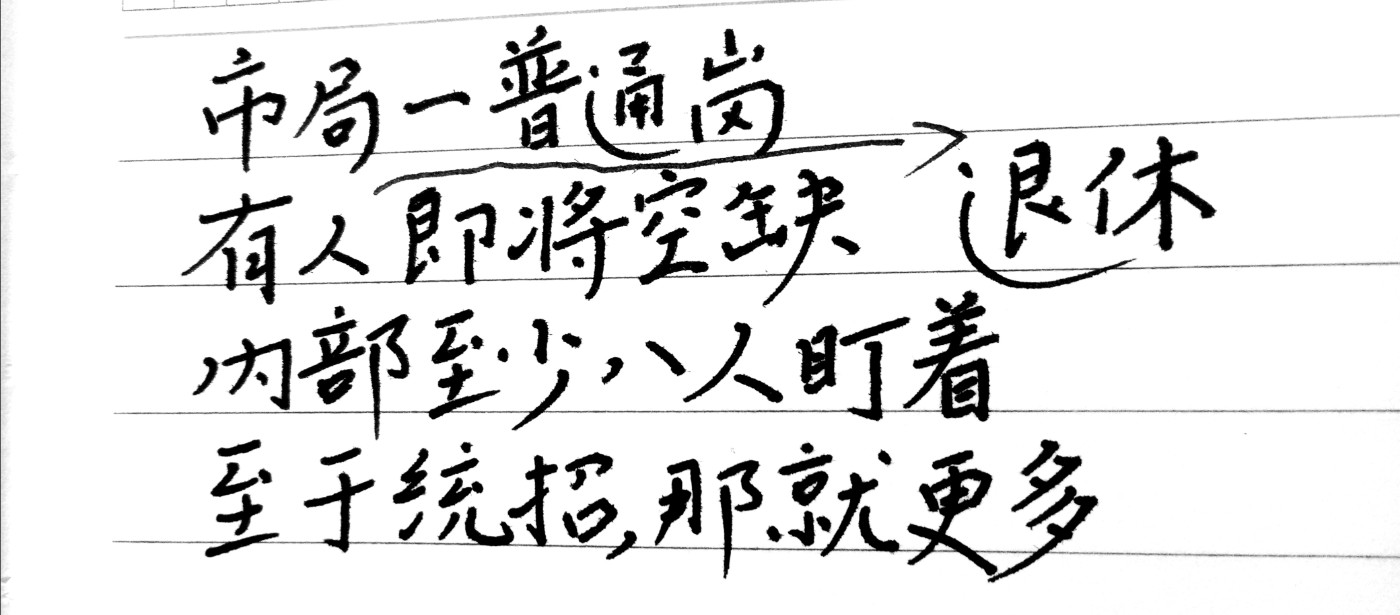 市局一普通岗
有人即将空缺 退休
内部至少八人盯着
至于统招,那就更多